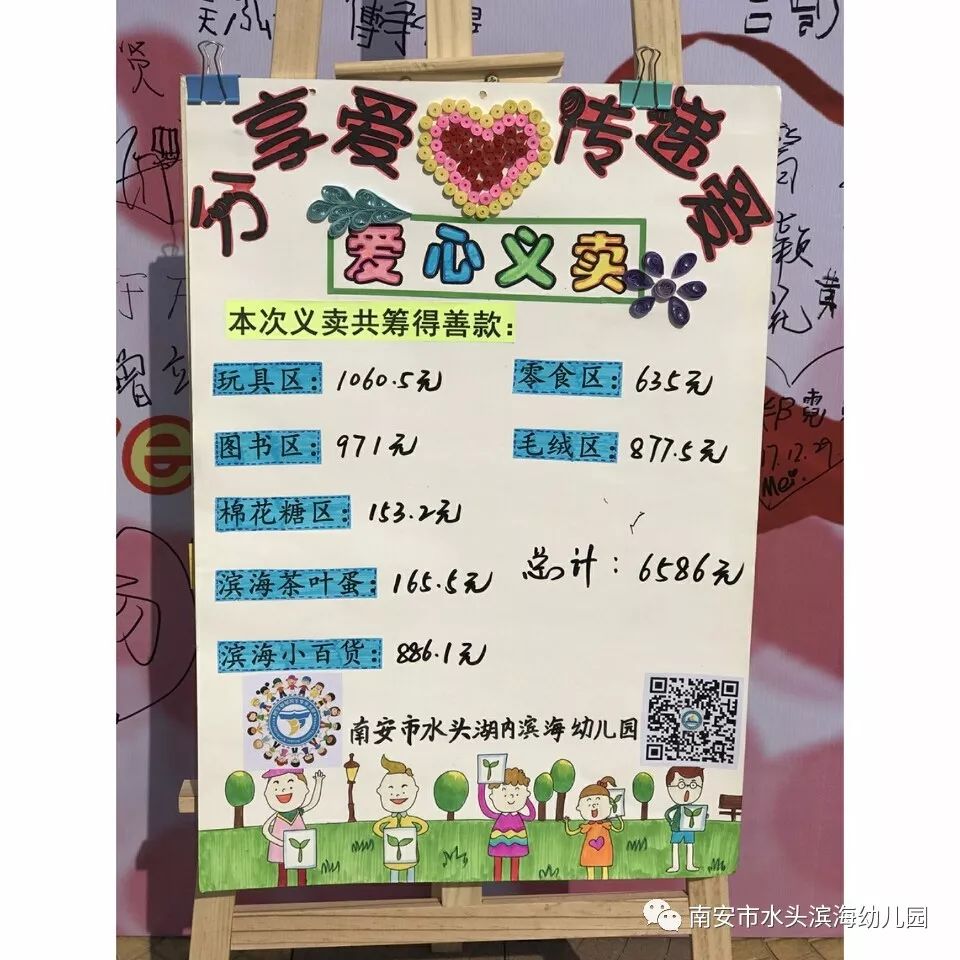 分享爱 传递爱
爱心义卖
本次义卖共筹得善款：
玩具区： 1060.5元
零食区： 635元
图书区： 971元
毛绒区： 877.5元
棉花糖区： 153.2元
滨海茶叶蛋： 165.5元
总计： 6586元
滨海小百货： 886.1元
南安市水头湖内滨海幼儿园
17.12.29
Mei.
南安市水头滨海幼儿园